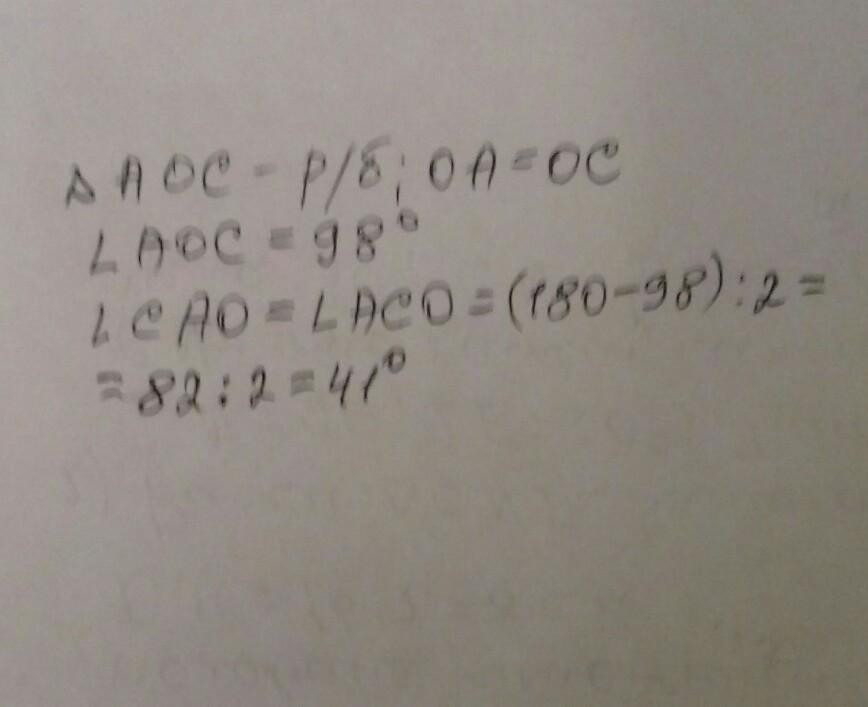 △ AOC - р/б; OA=OC
∠AOC = 98°
∠CAO = ∠ACO = (180-98):2=
= 82:2=41°